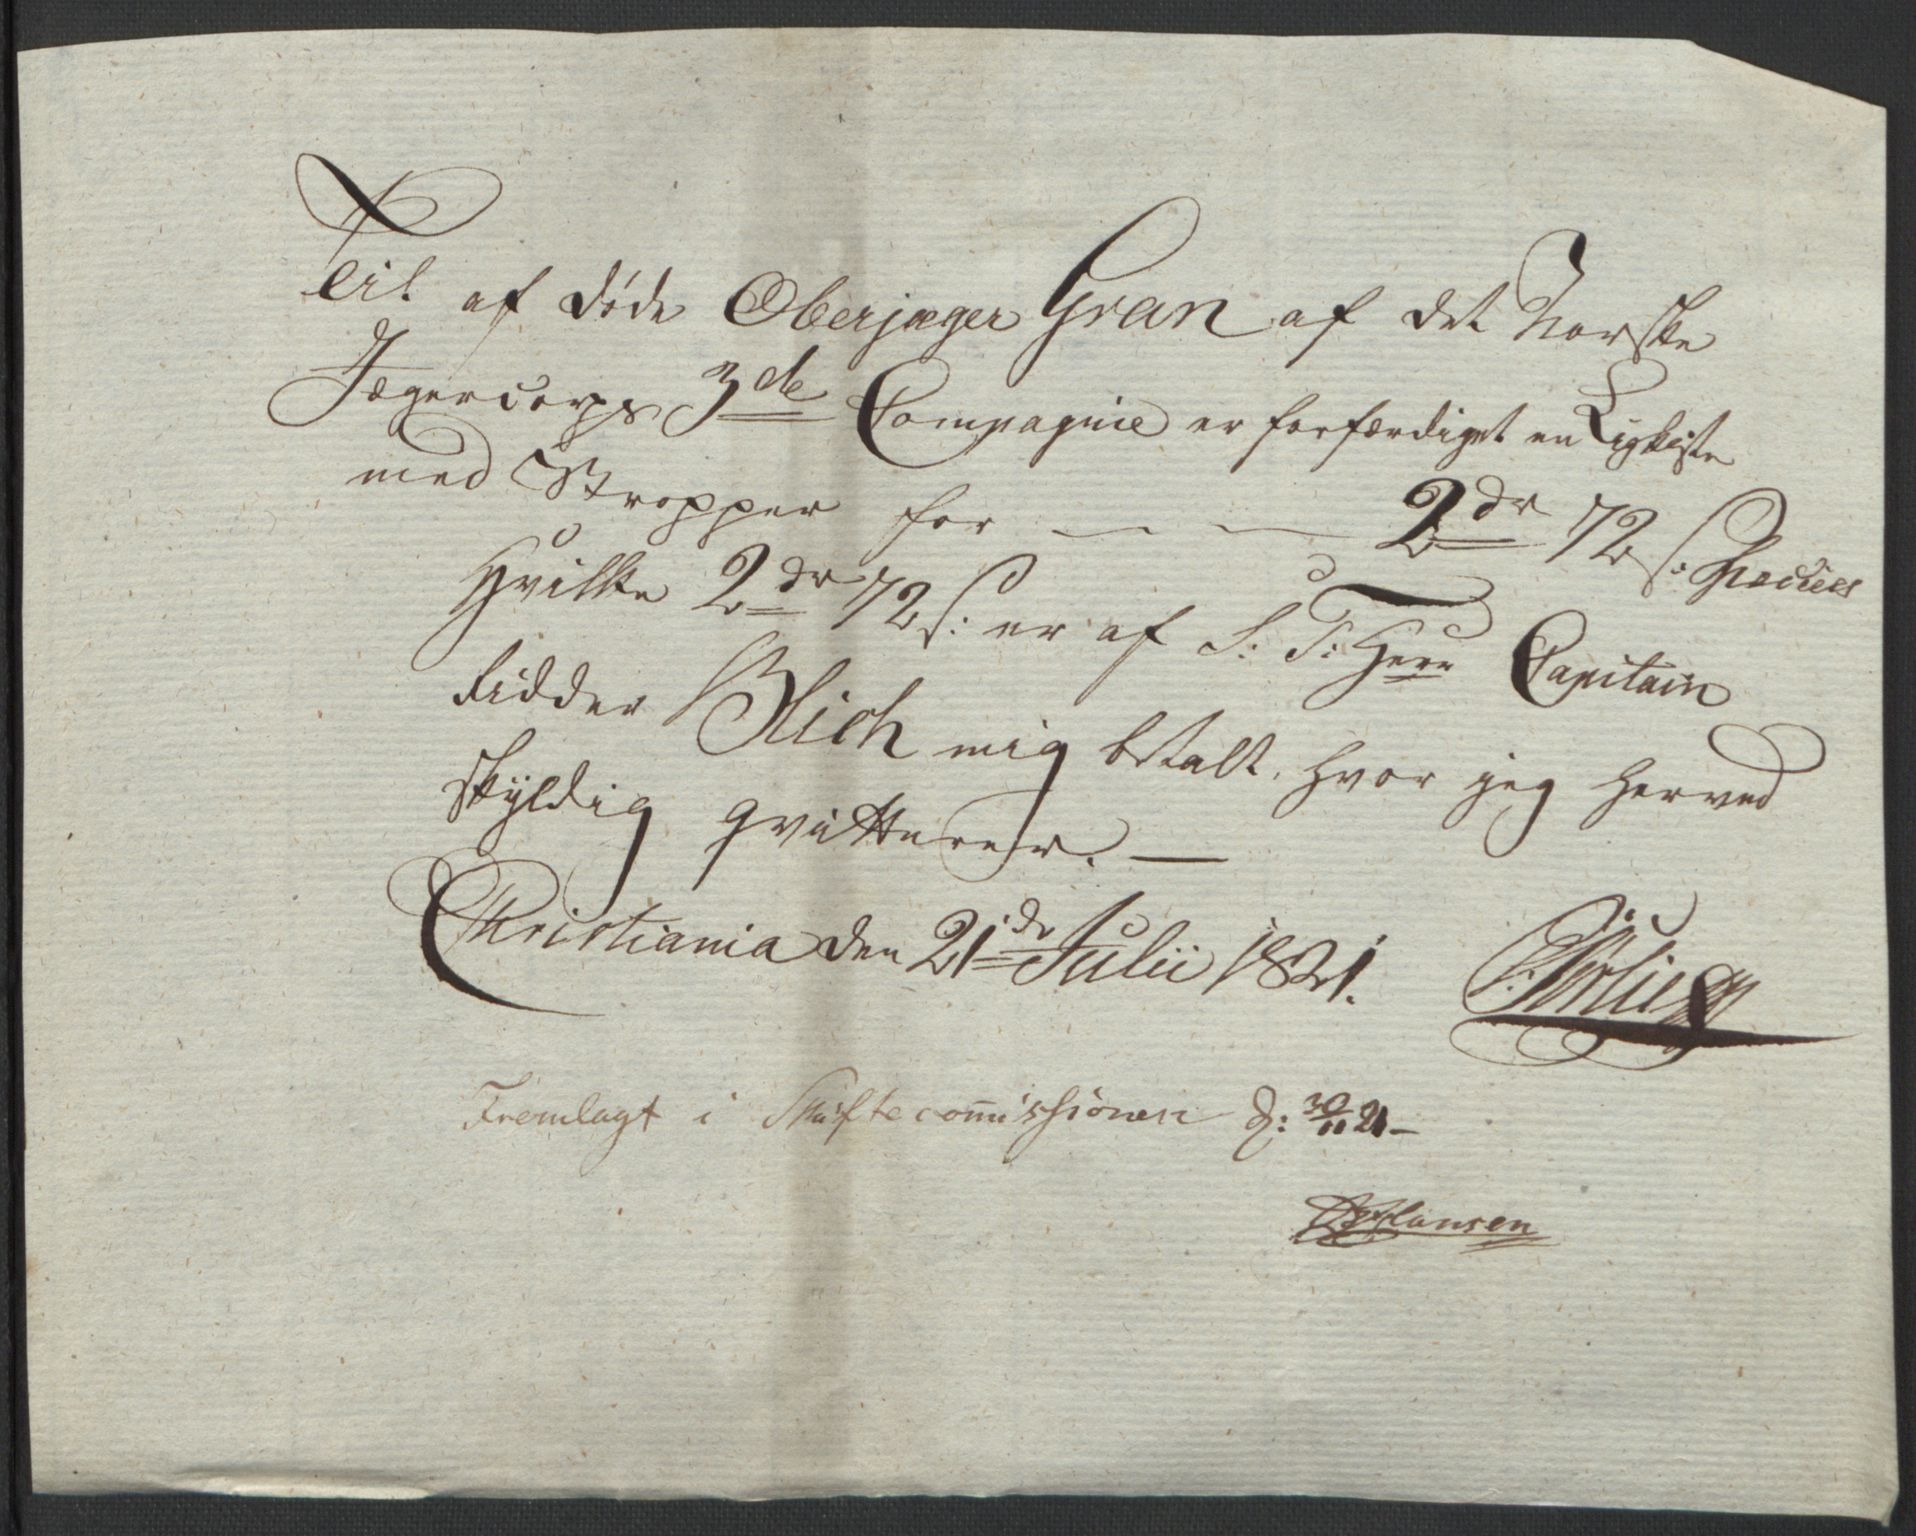 Til af døde Oberjæger Gran af det Norske
Jægercorps 3de Compagnie er forfærdiget en Ligkiste
med Stropper for — — 2dr 72 s: Species
Hvilke 2dr 72 s: er af S: T: Herr Capitain
Ridder Blich mig betalt, hvor jeg herved
skyldig qvitterer. —
Christiania den 21de Julii 1821.
Fremlagt i Skiftecommissionen d: 30/11 21 —
Hansen